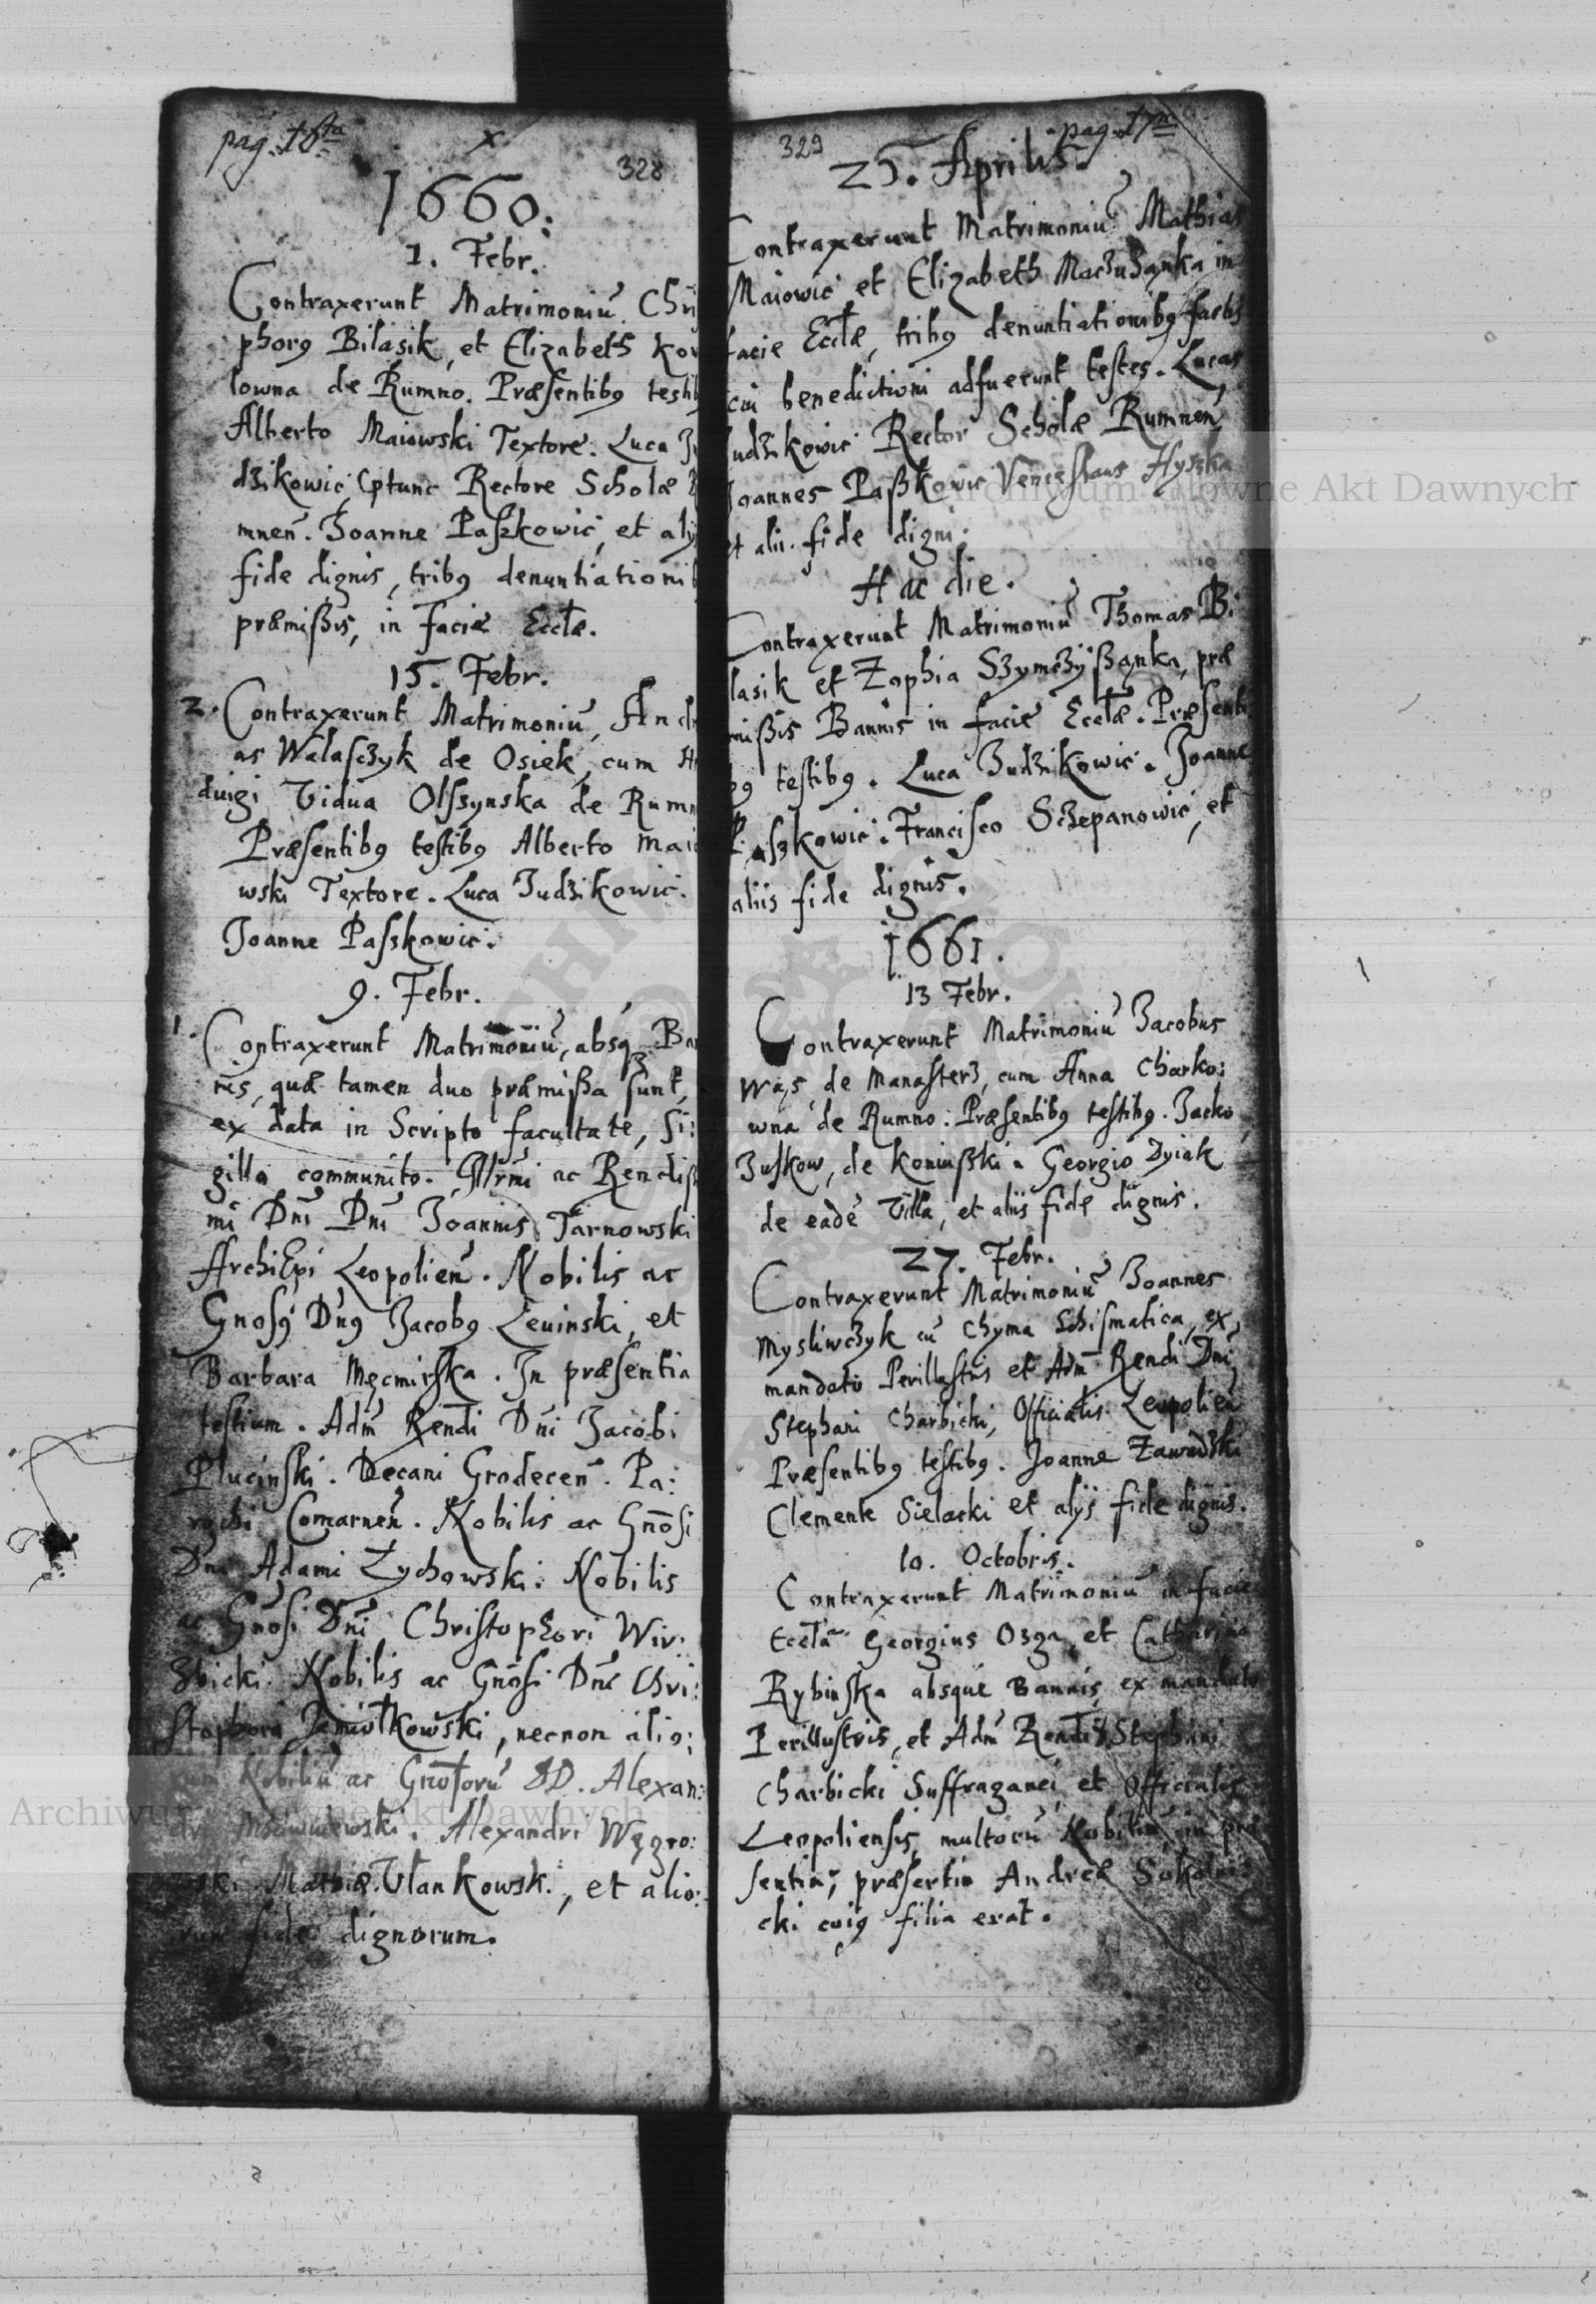 pag. 16ta x
328
1660.
1. Febr.
Contraxerunt Matrimoniũ Chri
phorꝰ Bilasik, et Elizabeth Kow
lowna de Rumno. Præsentibꝰ testib
Alberto Maiowski Textore. Luca Ju
dzikowic, Cptunc Rectore Scholæ R
mnen̄. Joanne Paszkowic, et alÿ
fide dignis, tribꝰ denuntiationib
præmißis, in facie Eccłæ.
15. Febr.
2. Contraxerunt Matrimoniũ, Andr
as Walasczyk de Osiek, cum He
duigi Vidua Olssynska de Rumn
Præsentibꝰ testibꝰ Alberto Maio
wski Textore. Luca Judzikowic.
Joanne Passkowic.
9. Febr.
1. Contraxerunt Matrimoniũ, absqꝫ Ban
nis, quæ tamen duo præmißa sunt,
ex data in Scripto facultate, Si:
gillo communito. Illr̄mi ac Rendiss
mi Dn̄i Dn̄i Joannis Tarnowski
ArchiEpi Leopolien̄. Nobilis ac
Gnosꝰ Dn̄ꝰ Jacobꝰ Levinski, et
Barbara Męcmirska. In præsentia
testium. Adm̄ Rendi Dn̄i Jacobi
Plucinski. Decani Grodecen̄. Pa:
rochi Comarnen̄. Nobilis ac Gn̄osi
Dn̄i Adami Zychowski. Nobilis
ac Gn̄osi Dn̄i Christophori Wir:
zbicki. Nobilis ac Gn̄osi Dn̄i Chri:
stophori Jamiołkowski, necnon alio:
rum Nobiliũ ac Gnosorũ DD. Alexan:
dri. Alexandri Węgro:
wski Mathiæ Vłankowski, et alio:
rum fide dignorum.
329 pag. 17ma
25. Aprilis.
Contraxerunt Matrimoniũ Mathias
Maiowic et Elizabeth Maczużanka in
facie Eccłæ, tribꝰ denuntiationibꝰ factis
cui benedictioni adfuerunt testes. Lucas
Judzikowic Rector Scholæ Rumnen̄
Joannes Paßkowic Venceslaus Hyszka
et alii fide digni.
Hac die.
Contraxerunt Matrimoniũ Thomas Bi
lasik et Zophia Szymczÿßanka, præ
mißis Bannis in facie Eccłæ. Præsenti
bꝰ testibꝰ. Luca Judzikowic. Joanne
Paszkowic. Francisco Sczepanowic, et
aliis fide dignis.
1661.
13 Febr.
Contraxerunt Matrimoniũ Jacobus
Wąs de Manasterz, cum Anna Charko:
wna de Rumno. Præsentibꝰ testibꝰ. Jacko
Juskow, de Koniußki. Georgio Dyiak
de eadē Villa, et aliis fide dignis.
27. Febr.
Contraxerunt Matrimoniũ Joannes
Mysliwczyk cũ Chyma Schismatica, ex
mandato Perillustris et Adm̄ Rendi Dn̄i
Stephani Charbicki, Officialis Leopolien̄
Præsentibꝰ testibꝰ. Joanne Zawadzki
Clemente Sielacki et alÿs fide dignis.
10. Octobris.
Contraxerunt Matrimoniũ in facie
Eccłæ Georgius Ozga, et Catharina
Rybinska absque Bannis ex mandato
Perillustris, et Adm̄ Rendi Stephani
Charbicki Suffraganei et Officialis
Leopoliensis multorũ Nobiliũ in præ
sentia, præsertim Andreæ Sokolni
cki cuiꝰ filia erat.
Archiwum Główne Akt Dawnych
Archiwum Główne Akt Dawnych